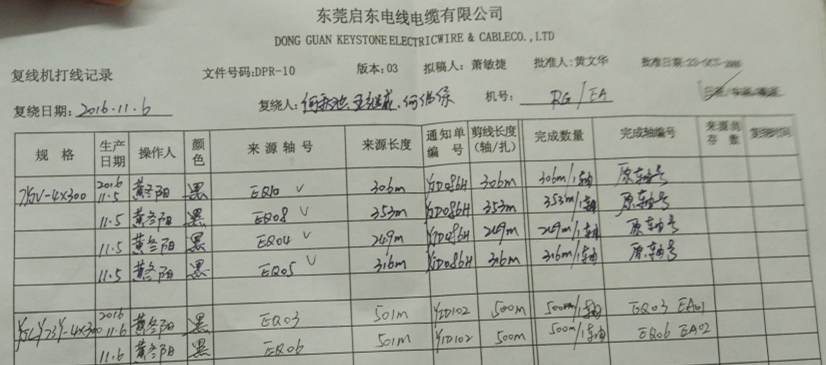 东莞启东电线电缆有限公司
DONG GUAN KEYSTONE ELECTRIC WIRE & CABLE CO., LTD
复线机打线记录 文件号码:DPR-10 版本:03 拟稿人:萧敏捷 批准人:黄文华 批准日期:
复绕日期:2016.11.6 复绕人: 机号: RG/EA
规格 生产日期 操作人 颜色 来源轴号 来源长度 通知单编号 剪线长度(轴/扎) 完成数量 完成轴编号 来源员存数 复绕时间
2016 11.5 黄冬阳 黑 EQ10 V 306m YJD086H 306m 306m/1轴 原轴号
11.5 黄冬阳 黑 EQ08 V 353m YJD086H 353m 353m/1轴 原轴号
11.5 黄冬阳 黑 EQ04 V 249m YJD086H 249m 249m/1轴 原轴号
11.5 黄冬阳 黑 EQ05 V 316m YJD086H 316m 316m/1轴 原轴号
2016 11.6 黄冬阳 黑 EQ03 501m YJD102 500m 500m/1轴 EQ03 EA01
11.6 黄冬阳 黑 EQ06 501m YJD102 500m 500m/1轴 EQ06 EA02